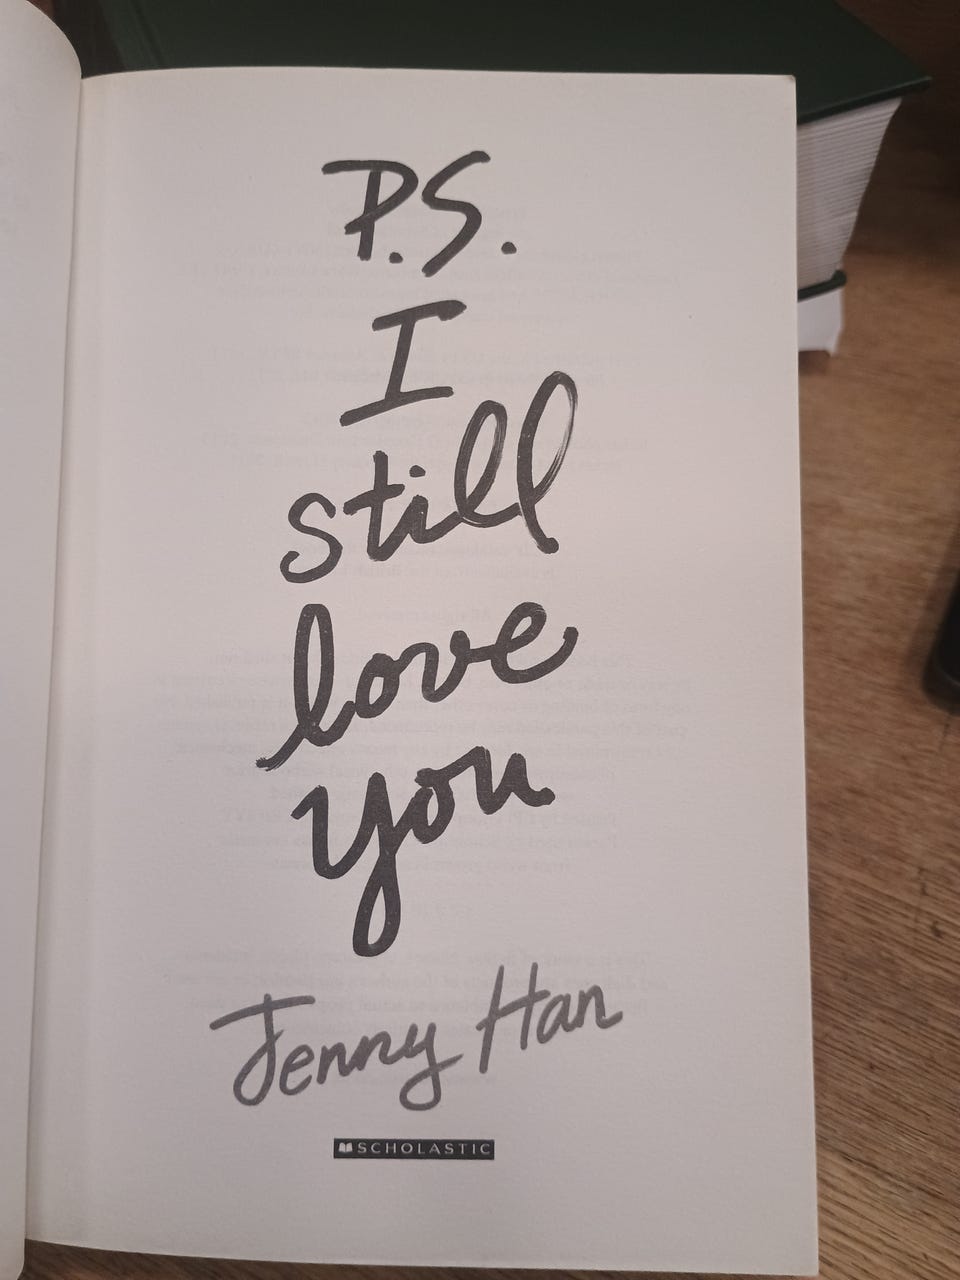 P.S.
I
still
love
you
Jenny Han
SCHOLASTIC